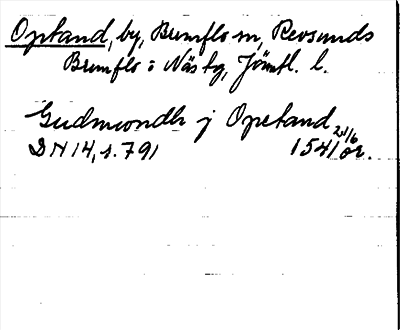 Optand, by, Brunflo sn, Revsunds
Brunflo o Näs tg, Jämtl. l.
Gudmundh j Opetand
21/6
DN 14, s. 791 1541 or.